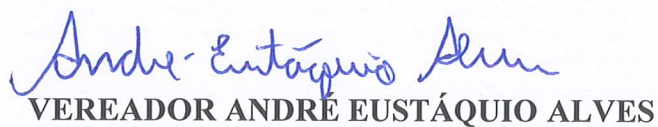 André Eustáquio Alves
VEREADOR ANDRÉ EUSTÁQUIO ALVES